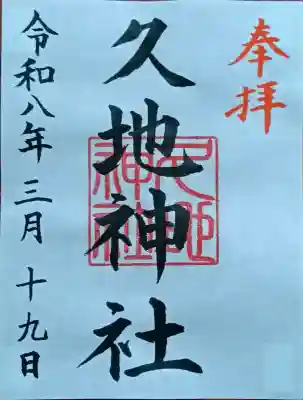 奉拝
久地神社
久地
神社
令和八年三月十九日